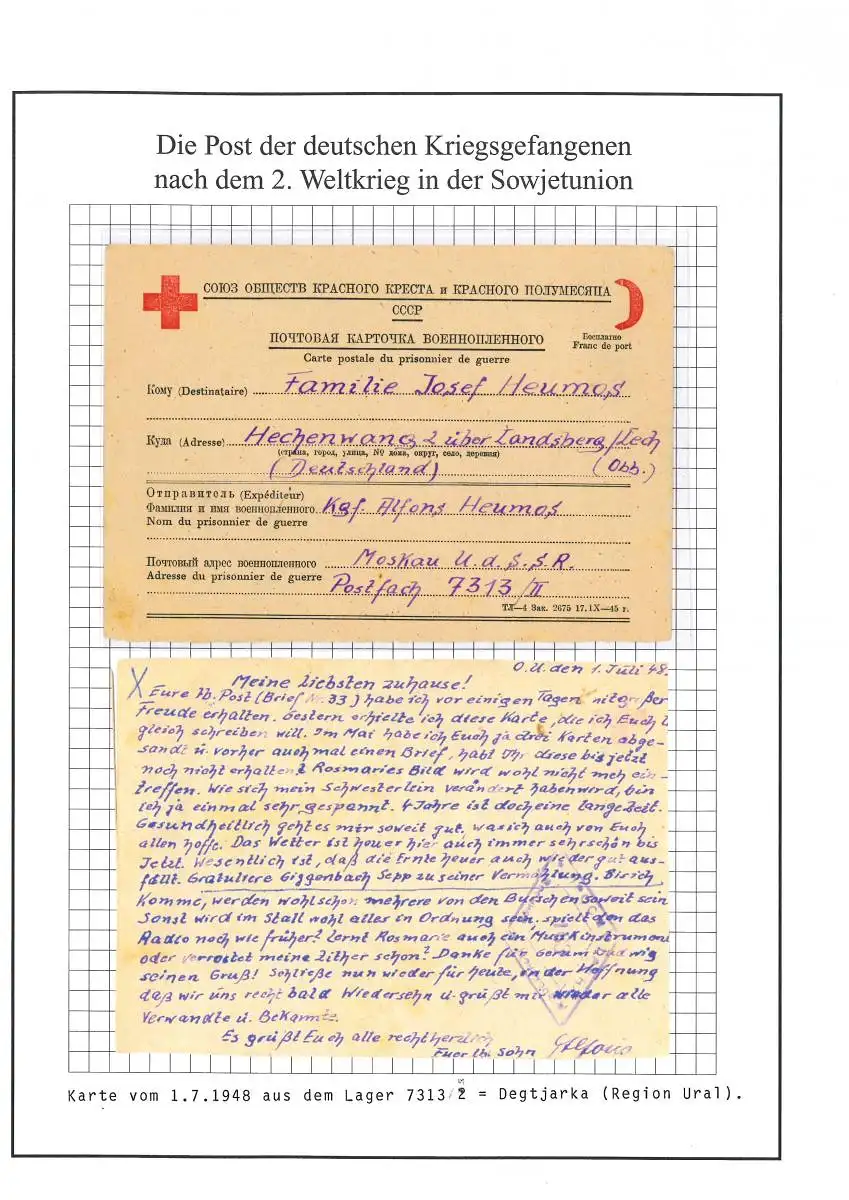 Die Post der deutschen Kriegsgefangenen
nach dem 2. Weltkrieg in der Sowjetunion
СОЮЗ ОБЩЕСТВ КРАСНОГО КРЕСТА и КРАСНОГО ПОЛУМЕСЯЦА
СССР
ПОЧТОВАЯ КАРТОЧКА ВОЕННОПЛЕННОГО
Бесплатно
Carte postale du prisonnier de guerre
Franc de port
Кому (Destinataire) Familie Josef Heumos
Куда (Adresse) Hechenwang 2 über Landsberg/Lech
(страна, город, улица, № дома, округ, село, деревня)
(Deutschland) (Obb.)
Отправитель (Expéditeur)
Фамилия и имя военнопленного Kgf. Alfons Heumos
Nom du prisonnier de guerre
Почтовый адрес военнопленного Moskau U.d.S.S.R.
Adresse du prisonnier de guerre Postfach 7313/II
ТЛ—4 Зак. 2675 17.IX—45 г.
O.U. den 1. Juli 48.
Meine Liebsten zuhause!
Eure lb. Post (Brief Nr. 33) habe ich vor einigen Tagen mit großer
Freude erhalten. Gestern erhielte ich diese Karte, die ich Euch
gleich schreiben will. Im Mai habe ich Euch ja drei Karten abge-
sandt u. vorher auch mal einen Brief, habt Ihr diese bis jetzt
noch nicht erhalten? Rosmaries Bild wird wohl nicht meh ein-
treffen. Wie sich mein Schwesterlein verändert haben wird, bin
ich ja einmal sehr gespannt. 4 Jahre ist doch eine lange Zeit.
Gesundheitlich geht es mir soweit gut, was ich auch von Euch
allen hoffe. Das Wetter ist heuer hier auch immer sehr schön bis
Jetzt. Wesentlich ist, daß die Ernte heuer auch wieder gut aus-
fällt. Gratuliere Giggenbach Sepp zu seiner Vermählung. Bis ich
Komme, werden wohl schon mehrere von den Burschen soweit sein
Sonst wird im Stall wohl alles in Ordnung sein, spielt den das
Radio noch wie früher? Lernt Rosmarie auch ein Musikinstrument
oder verrostet meine Zither schon? Danke für Ludwig
seinen Gruß! Schließe nun wieder für heute, in der Hoffnung
daß wir uns recht bald Wiedersehn u. grüßt mir wieder alle
Verwandte u. Bekannte.
Es grüßt Euch alle recht herzlich
Euer lb. Sohn Alfons
Karte vom 1.7.1948 aus dem Lager 7313/2 = Degtjarka (Region Ural).